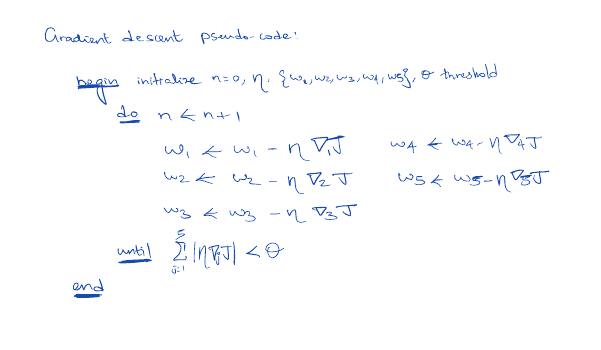 Gradient descent pseudo-code:
begin initialize n=0, η, {w₁,w₂,w₃,w₄,w₅}, θ threshold
do n ← n+1
w₁ ← w₁ - η ∇₁J w₄ ← w₄ - η ∇₄J
w₂ ← w₂ - η ∇₂J w₅ ← w₅ - η ∇₅J
w₃ ← w₃ - η ∇₃J
until ∑_{j=1}^{5} |η∇ⱼJ| < θ
end